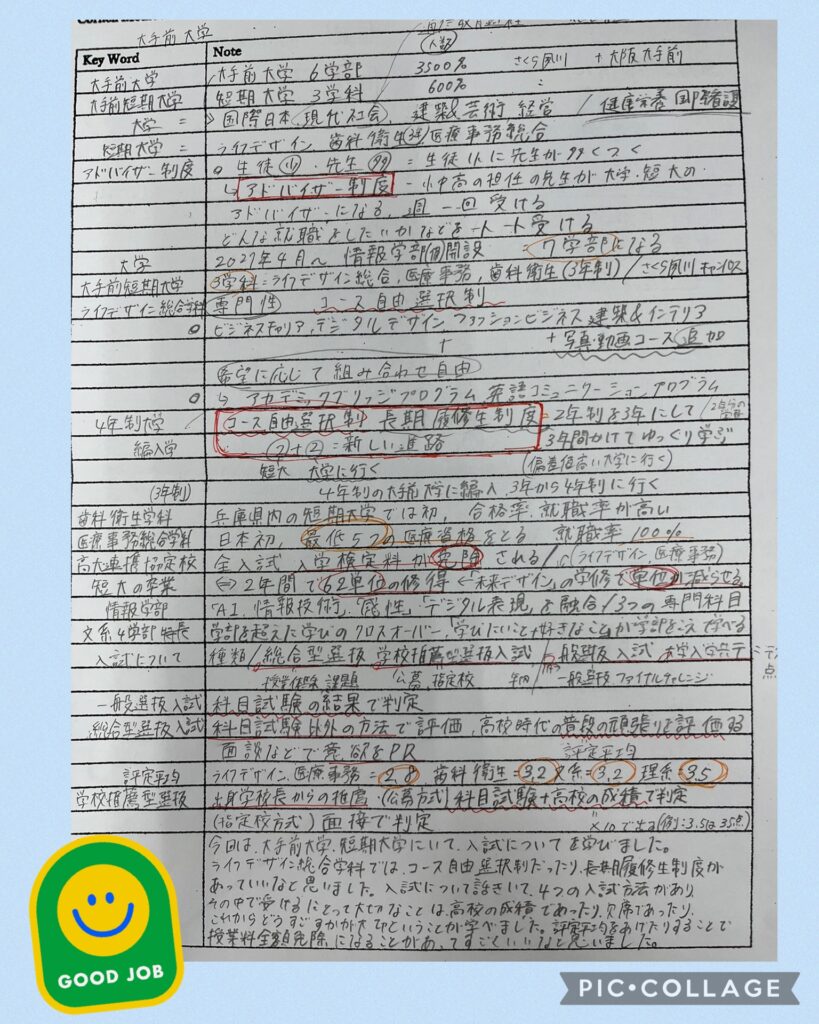 大手前大学
(人数)
Key Word Note
大手前大学 大手前大学 6学部 3500% さくら夙川 + 大阪大手前
大手前短期大学 短期大学 3学科 600%
大学 = 国際日本、現代社会、建築&芸術、経営 / 健康栄養 国際看護
短期大学 = ライフデザイン、歯科衛生、医療事務総合
アドバイザー制度 生徒(少)・先生(多) = 生徒1人に先生が多くつく
↳ アドバイザー制度 - 小中高の担任の先生が大学・短大の
アドバイザーになる、週一回受ける
どんな就職をしたいかなどをサポート受ける
大学 2027年4月〜 情報学部 開設 = 7学部になる
大手前短期大学 3学科:ライフデザイン総合、医療事務、歯科衛生(3年制) / さくら夙川キャンパス
ライフデザイン総合学科 専門性 コース自由選択制
ビジネスキャリア、デジタルデザイン、ファッションビジネス 建築&インテリア
+ 写真・動画コース 追加
希望に応じて組み合わせ自由
↳ アカデミックブリッジプログラム、英語コミュニケーションプログラム
4年制大学 コース自由選択制 長期履修生制度 = 2年制を3年にして
編入学 ②+② = 新しい進路 3年間かけてゆっくり学ぶ
短大 大学に行く (偏差値高い大学に行く)
(3年制) 4年制の大手前大学に編入、3年から4年制に行く
歯科衛生学科 兵庫県内の短期大学では初、合格率、就職率が高い
医療事務総合学科 日本初、最低5つの医療資格をとる 就職率100%
高大連携協定校 全入試 入学検定料が免除される / (ライフデザイン、医療事務)
短大の卒業 ⇔ 2年間で62単位の修得 ←「未来デザイン」の学修で単位が減らせる
情報学部 「AI、情報技術」、「感性」、「デジタル表現」を融合 / 3つの専門科目
文系4学部 特長 学部を超えた学びのクロスオーバー、「学びたいこと+好きなこと」が学部をこえて学べる
入試について 種類 / 総合型選抜 学校推薦型選抜入試 / 一般選抜入試
公募、指定校 一般選抜 ファイナルチャレンジ
一般選抜入試 科目試験の結果で判定
総合型選抜入試 科目試験以外の方法で評価、高校時代の普段の頑張りを評価する
面談などで意欲をPR 評定平均
評定平均 ライフデザイン、医療事務 = 2.8 歯科衛生 = 3.2 文系 = 3.2 理系 = 3.5
学校推薦型選抜 出身学校長からの推薦・(公募方式) 科目試験+高校の成績で判定
(指定校方式) 面接で判定 ×10で出す (例:3.5は35点)
今回は、大手前大学、短期大学にいて、入試についてを学びました。
ライフデザイン総合学科では、コース自由選択制だったり、長期履修生制度が
あっていいなと思いました。入試について話をきいて、4つの入試方法があり
その中で受けるにとって大切なことは、高校の成績であったり、欠席であったり、
これからどうすごすかが大切ということが学べました。評定平均をあげたりすることで
授業料全額免除になることがあってすごくいいなと思いました。
GOOD JOB
PIC•COLLAGE